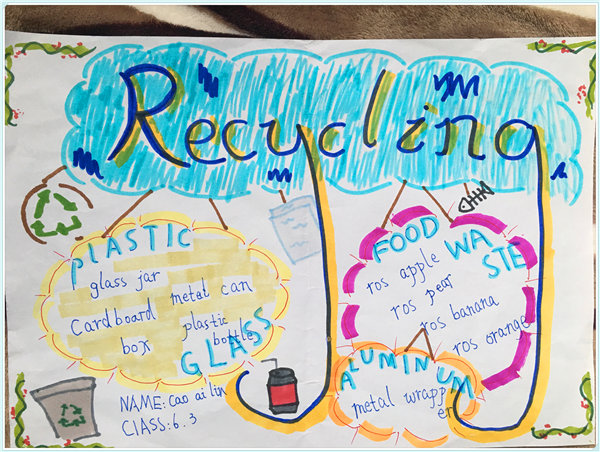 Recycling
PLASTIC
glass jar
metal can
Cardboard
box
plastic
bottle
GLASS
NAME: cao ai lin
ClASS: 6.3
FOOD WA
STE
ros apple
ros pear
ros banana
ros orange
ALUMINUM
metal wrapp
er